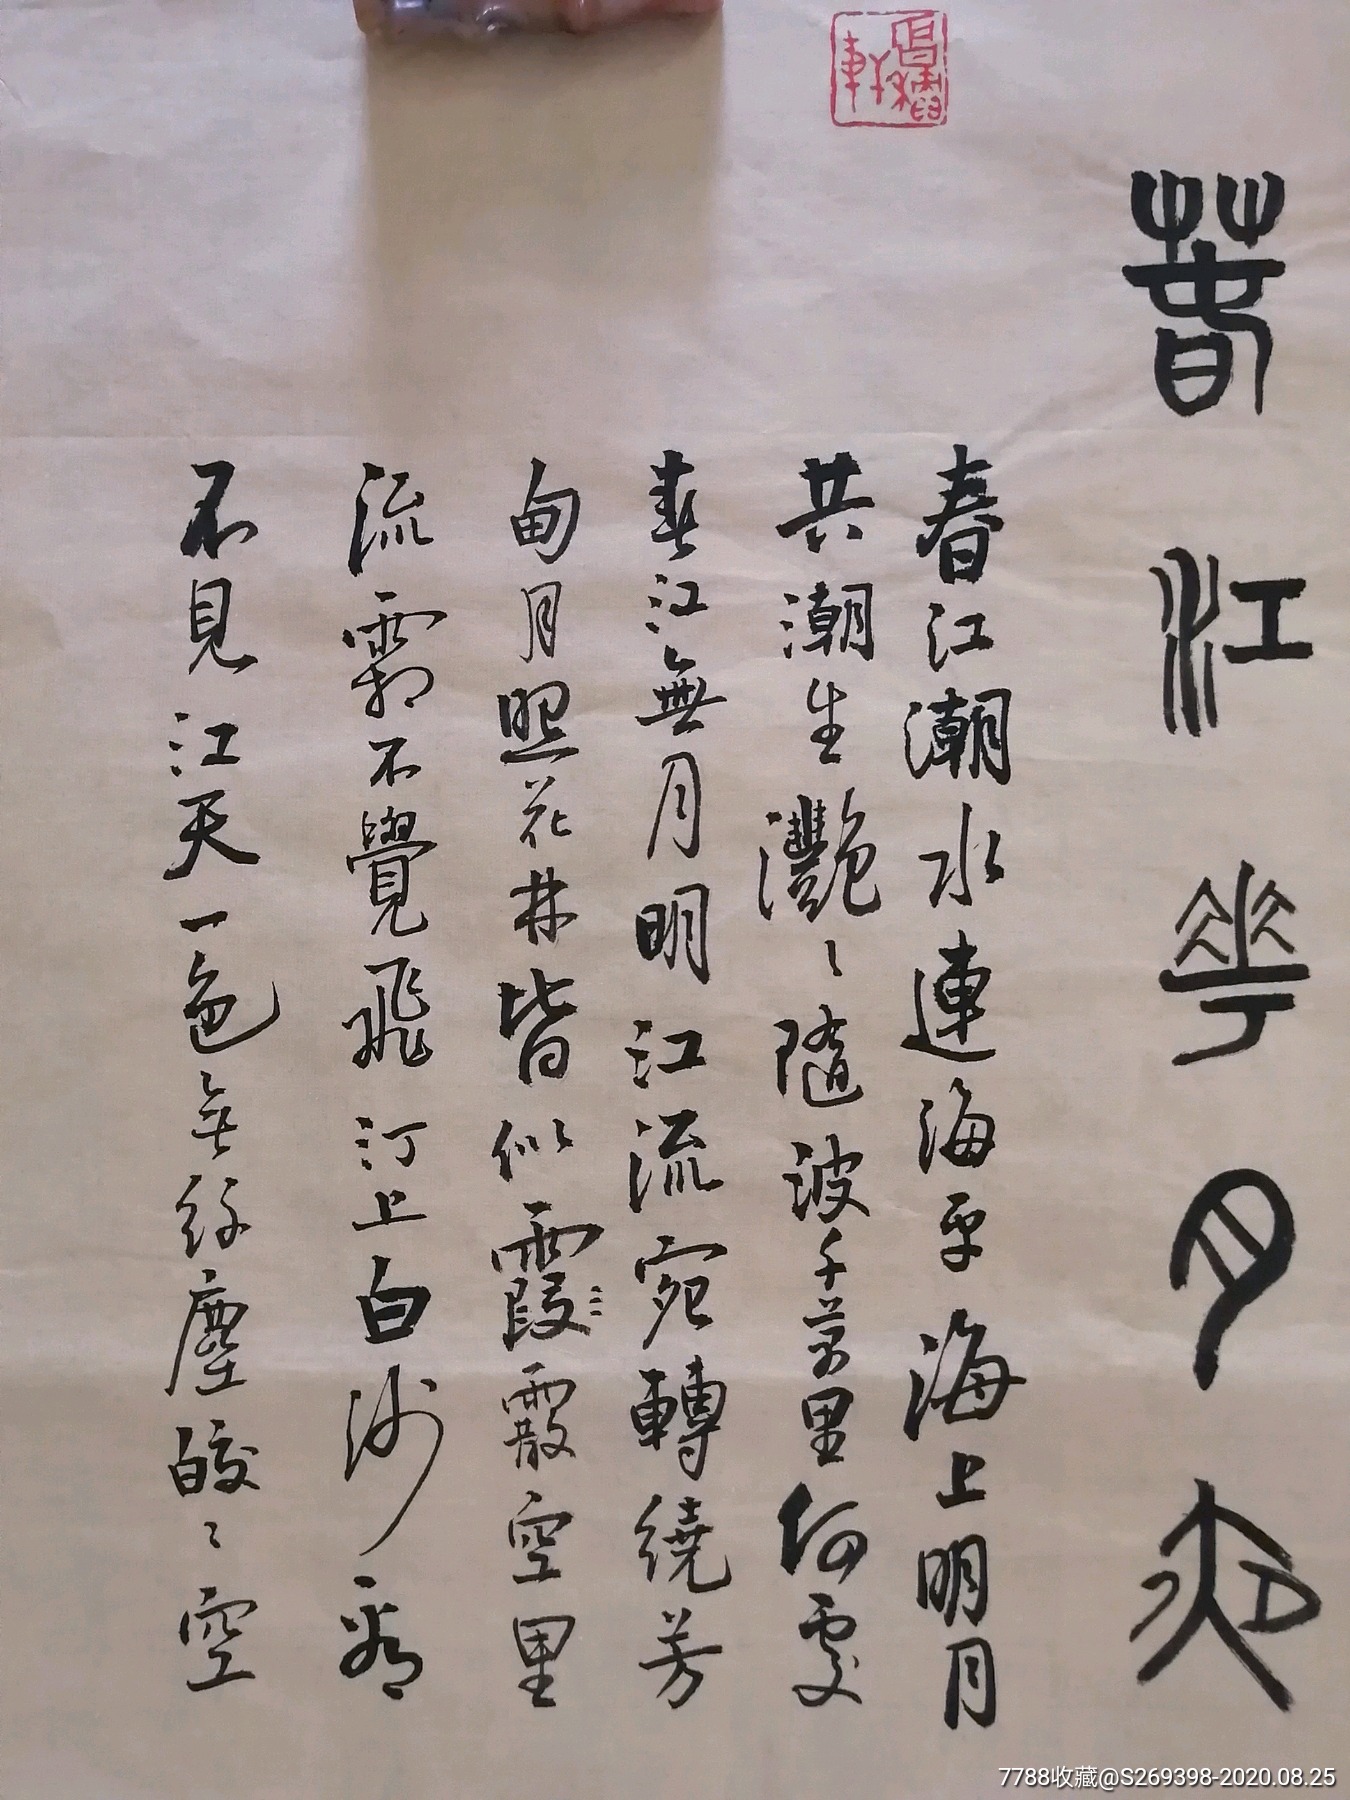 春江花月夜
春江潮水連海平海上明月
共潮生灔〻隨波千萬里何處
春江無月明江流宛轉繞芳
甸月照花林皆似霞霰空里
流霜不覺飛汀上白沙看
不見江天一色無纖塵皎〻空
7788收藏@S269398-2020.08.25